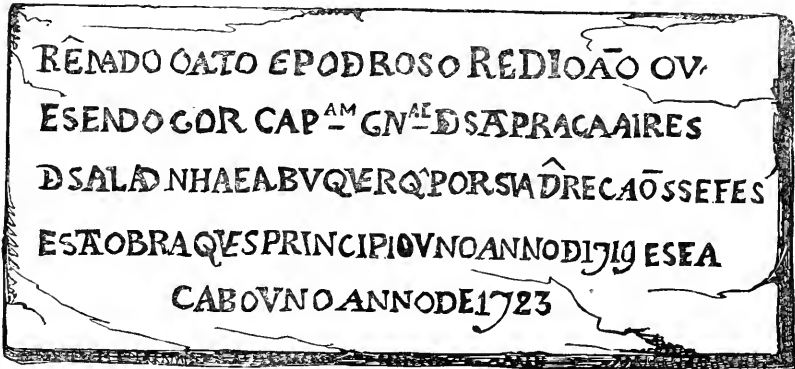 RÊNADO OATO EPODROSO REDIOÃO OV·
ESENDO GOR CAP ᴬᴹ GNᴬᴱ DSAPRACAAIRES
DSALADNHAEABVQVERQ'PORSVA D̂RECAÕSSEFES
ESTAOBRAQVESPRINCIPIOVNOANNOD1719 ESEA
CABOVNO ANNODE1723